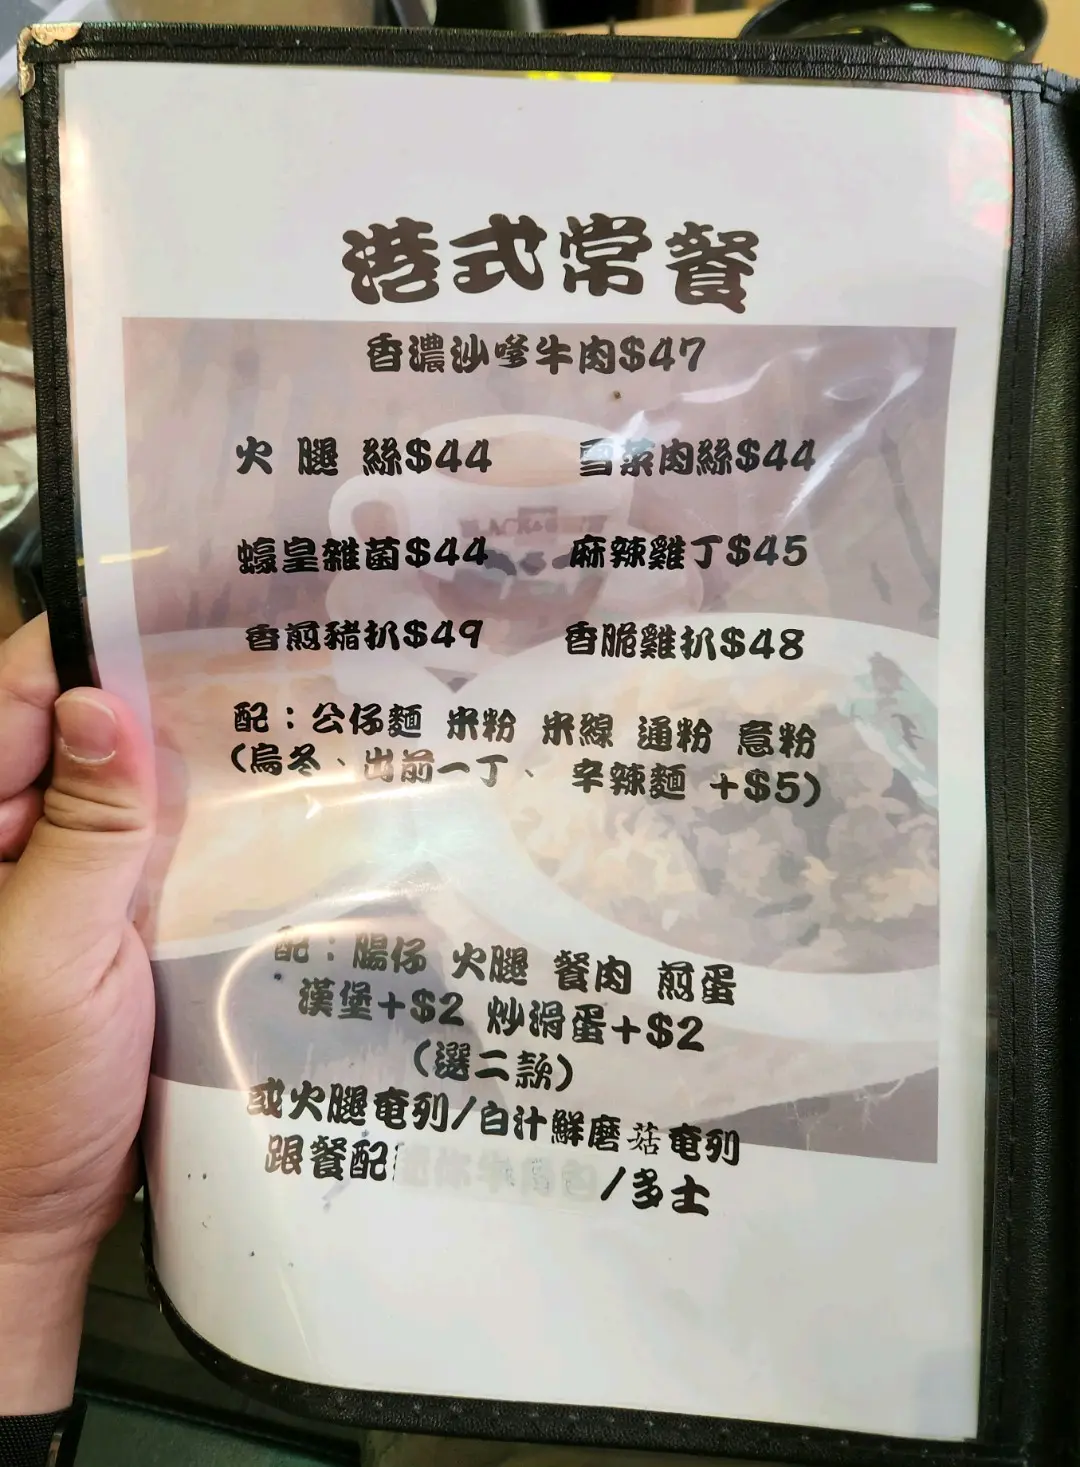 港式常餐
香濃沙嗲牛肉$47
火 腿 絲$44 雪菜肉絲$44
蠔皇雜菌$44 麻辣雞丁$45
香煎豬扒$49 香脆雞扒$48
配：公仔麵 米粉 米線 通粉 意粉
(烏冬、出前一丁、 辛辣麵 +$5)
配：腸仔 火腿 餐肉 煎蛋
漢堡+$2 炒滑蛋+$2
(選二款)
或火腿奄列/白汁鮮磨菇奄列
跟餐配 /多士